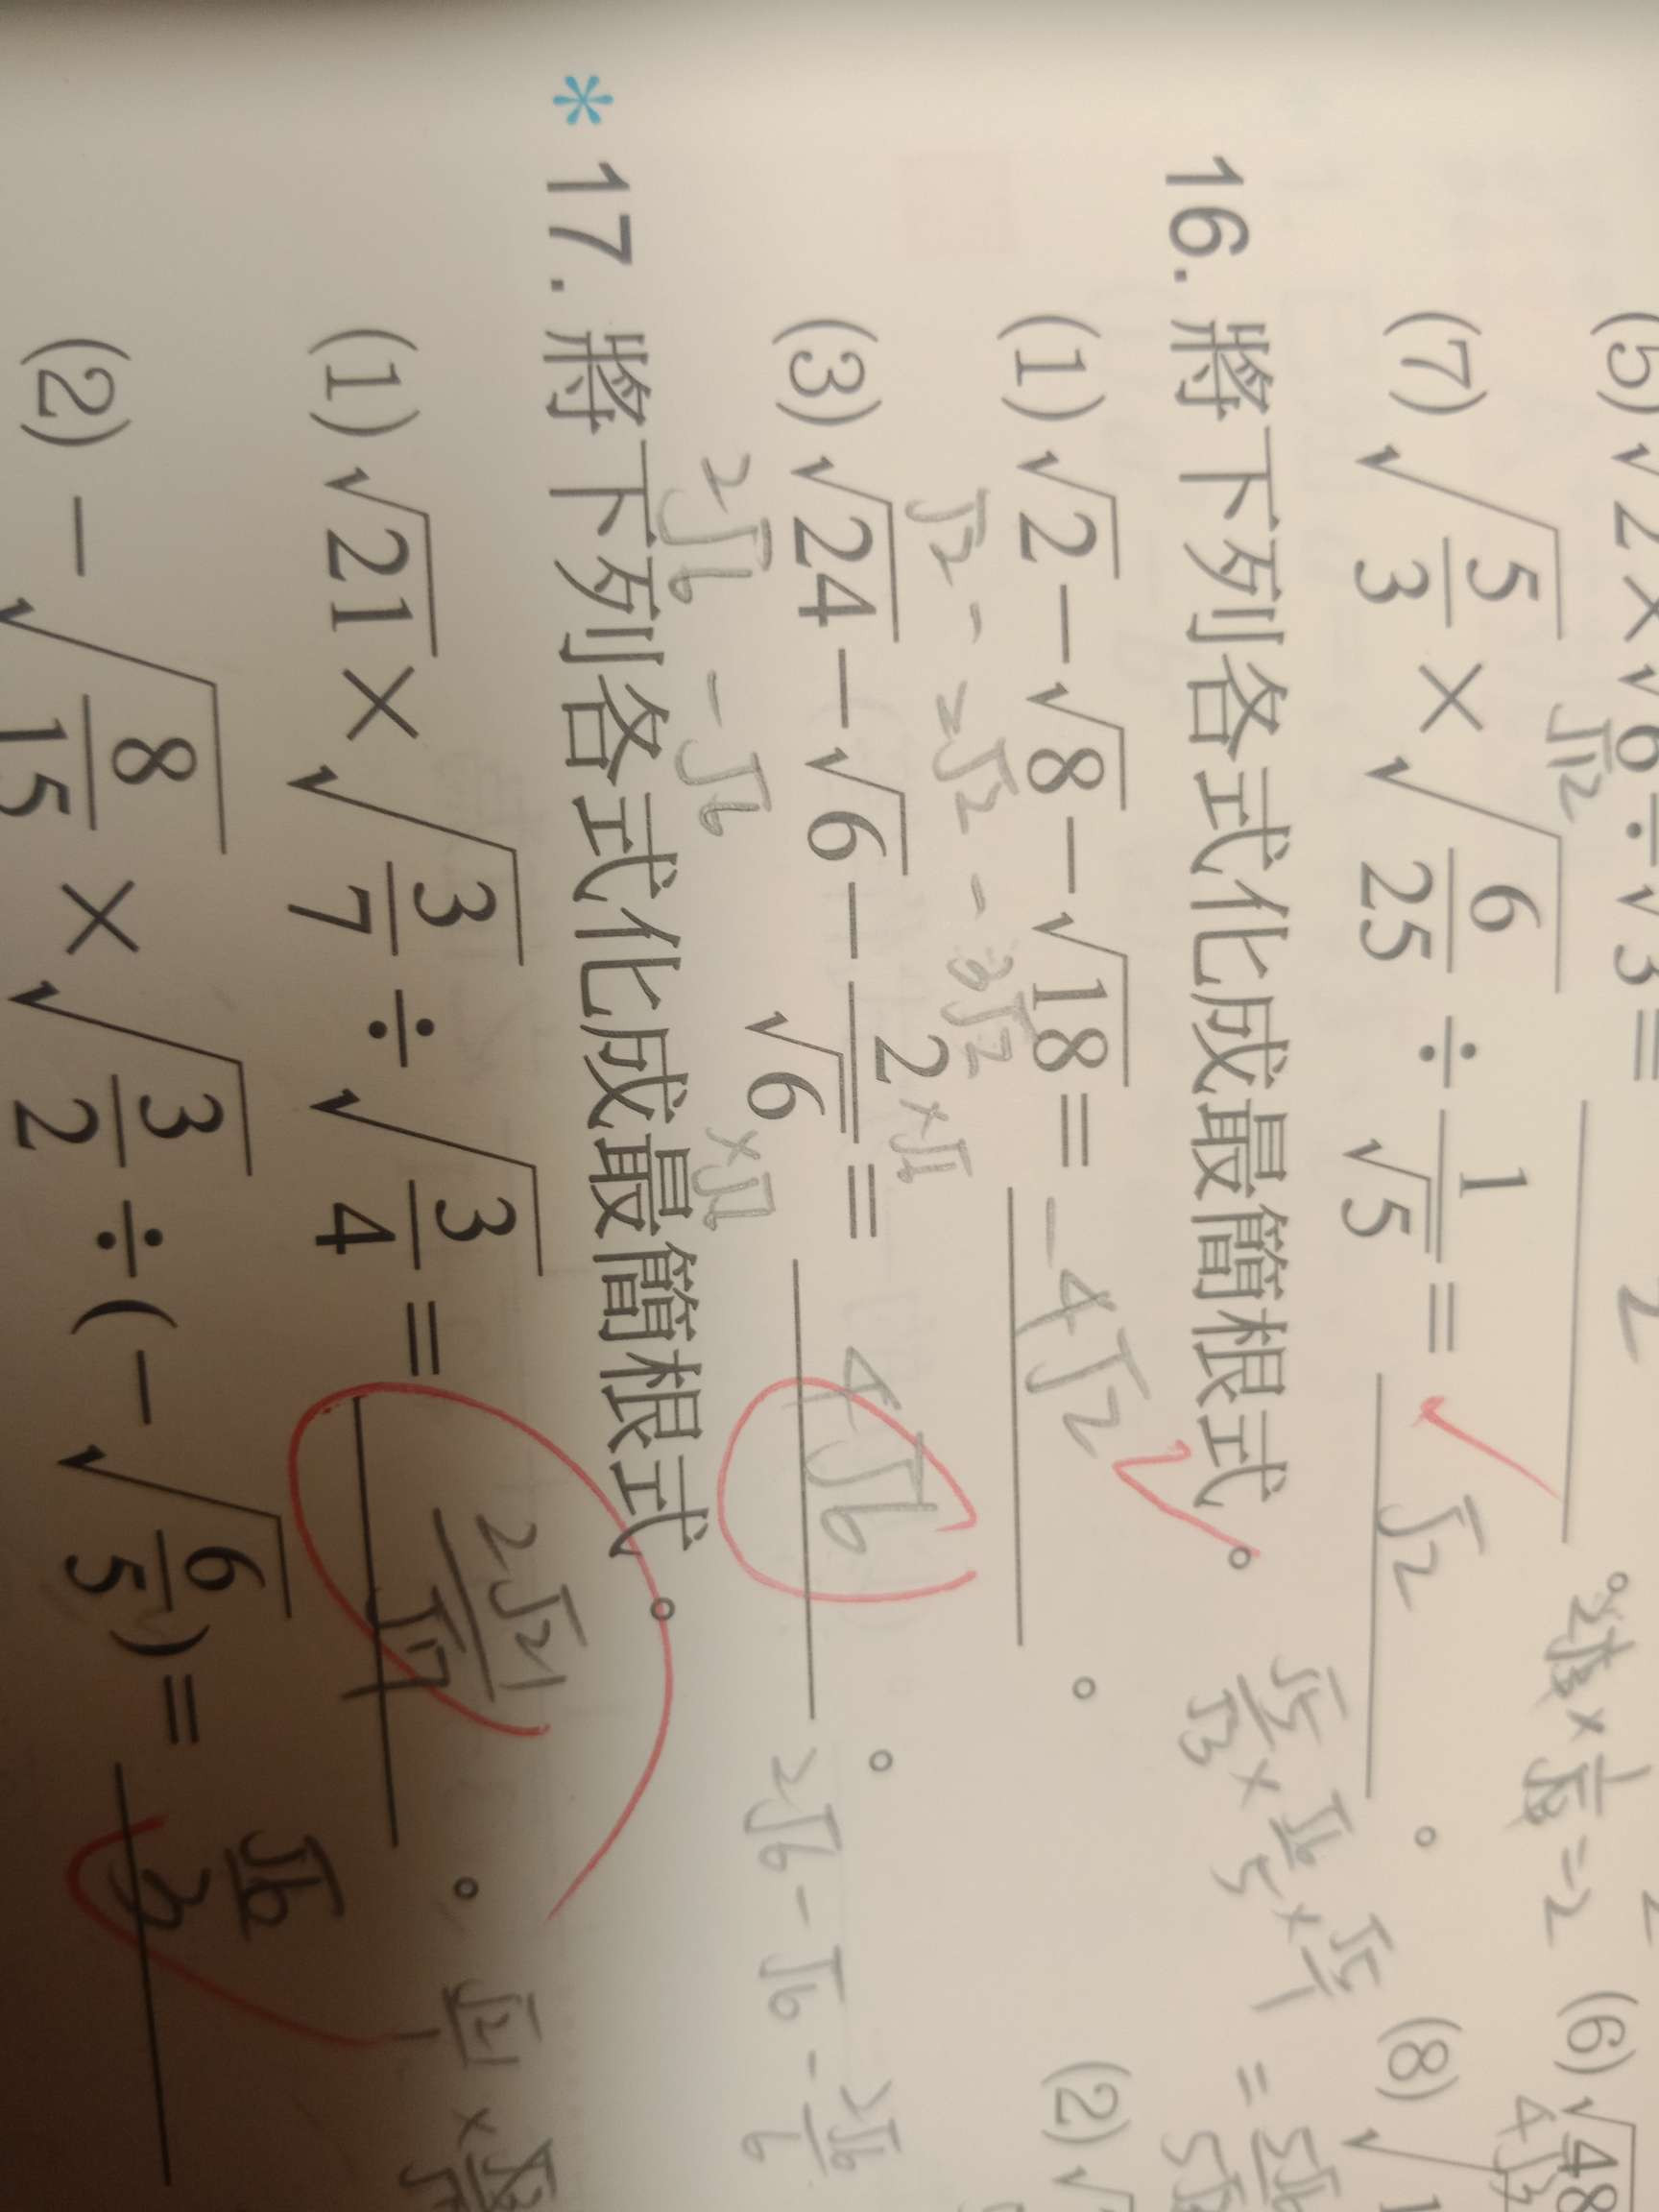 (5) √2×√6÷√3= 2 。 (6) √48
√12 2√3 × 1/√3 = 2 4√3
(7) √(5/3) × √(6/25) ÷ 1/√5 = √2 。 (8) √
√5/√3 × √6/5 × √5/1 = 5√6
16. 將下列各式化成最簡根式。
(1) √2-√8-√18= -4√2 。 (2) √
√2 - 2√2 - 3√2
(3) √24-√6-2/√6= 4√6 。
2√6 - √6
2√6 - √6 - 2√6/6
* 17. 將下列各式化成最簡根式。
(1) √21×√(3/7)÷√(3/4)= 2√21/√7 。
√21/1 ×
(2) -√(8/15)×√(3/2)÷(-√(6/5))= √6/3